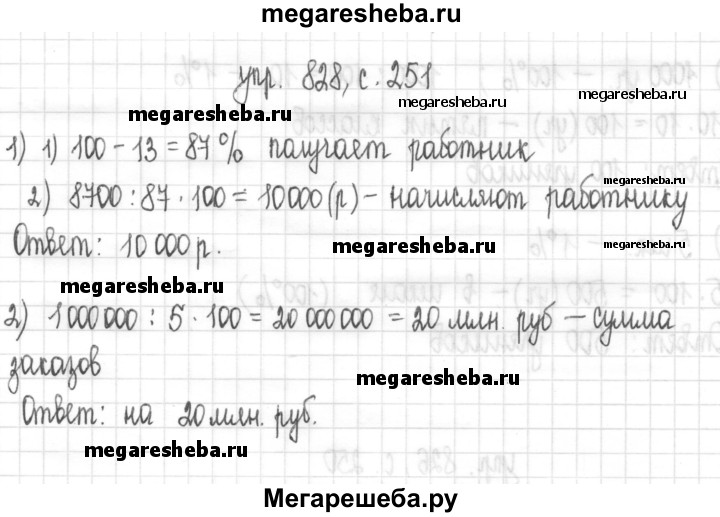 megaresheba.ru
упр. 828, с. 251
megaresheba.ru
megaresheba.ru
1) 1) 100 - 13 = 87% получает работник
megaresheba.ru
2) 8700 : 87 · 100 = 10000 (р) - начисляют работнику
Ответ: 10 000 р.
megaresheba.ru
megaresheba.ru
megaresheba.ru
2) 1 000 000 : 5 · 100 = 20 000 000 = 20 млн. руб - сумма
заказов
megaresheba.ru
Ответ: на 20 млн. руб.
megaresheba.ru
Мегарешеба.ру